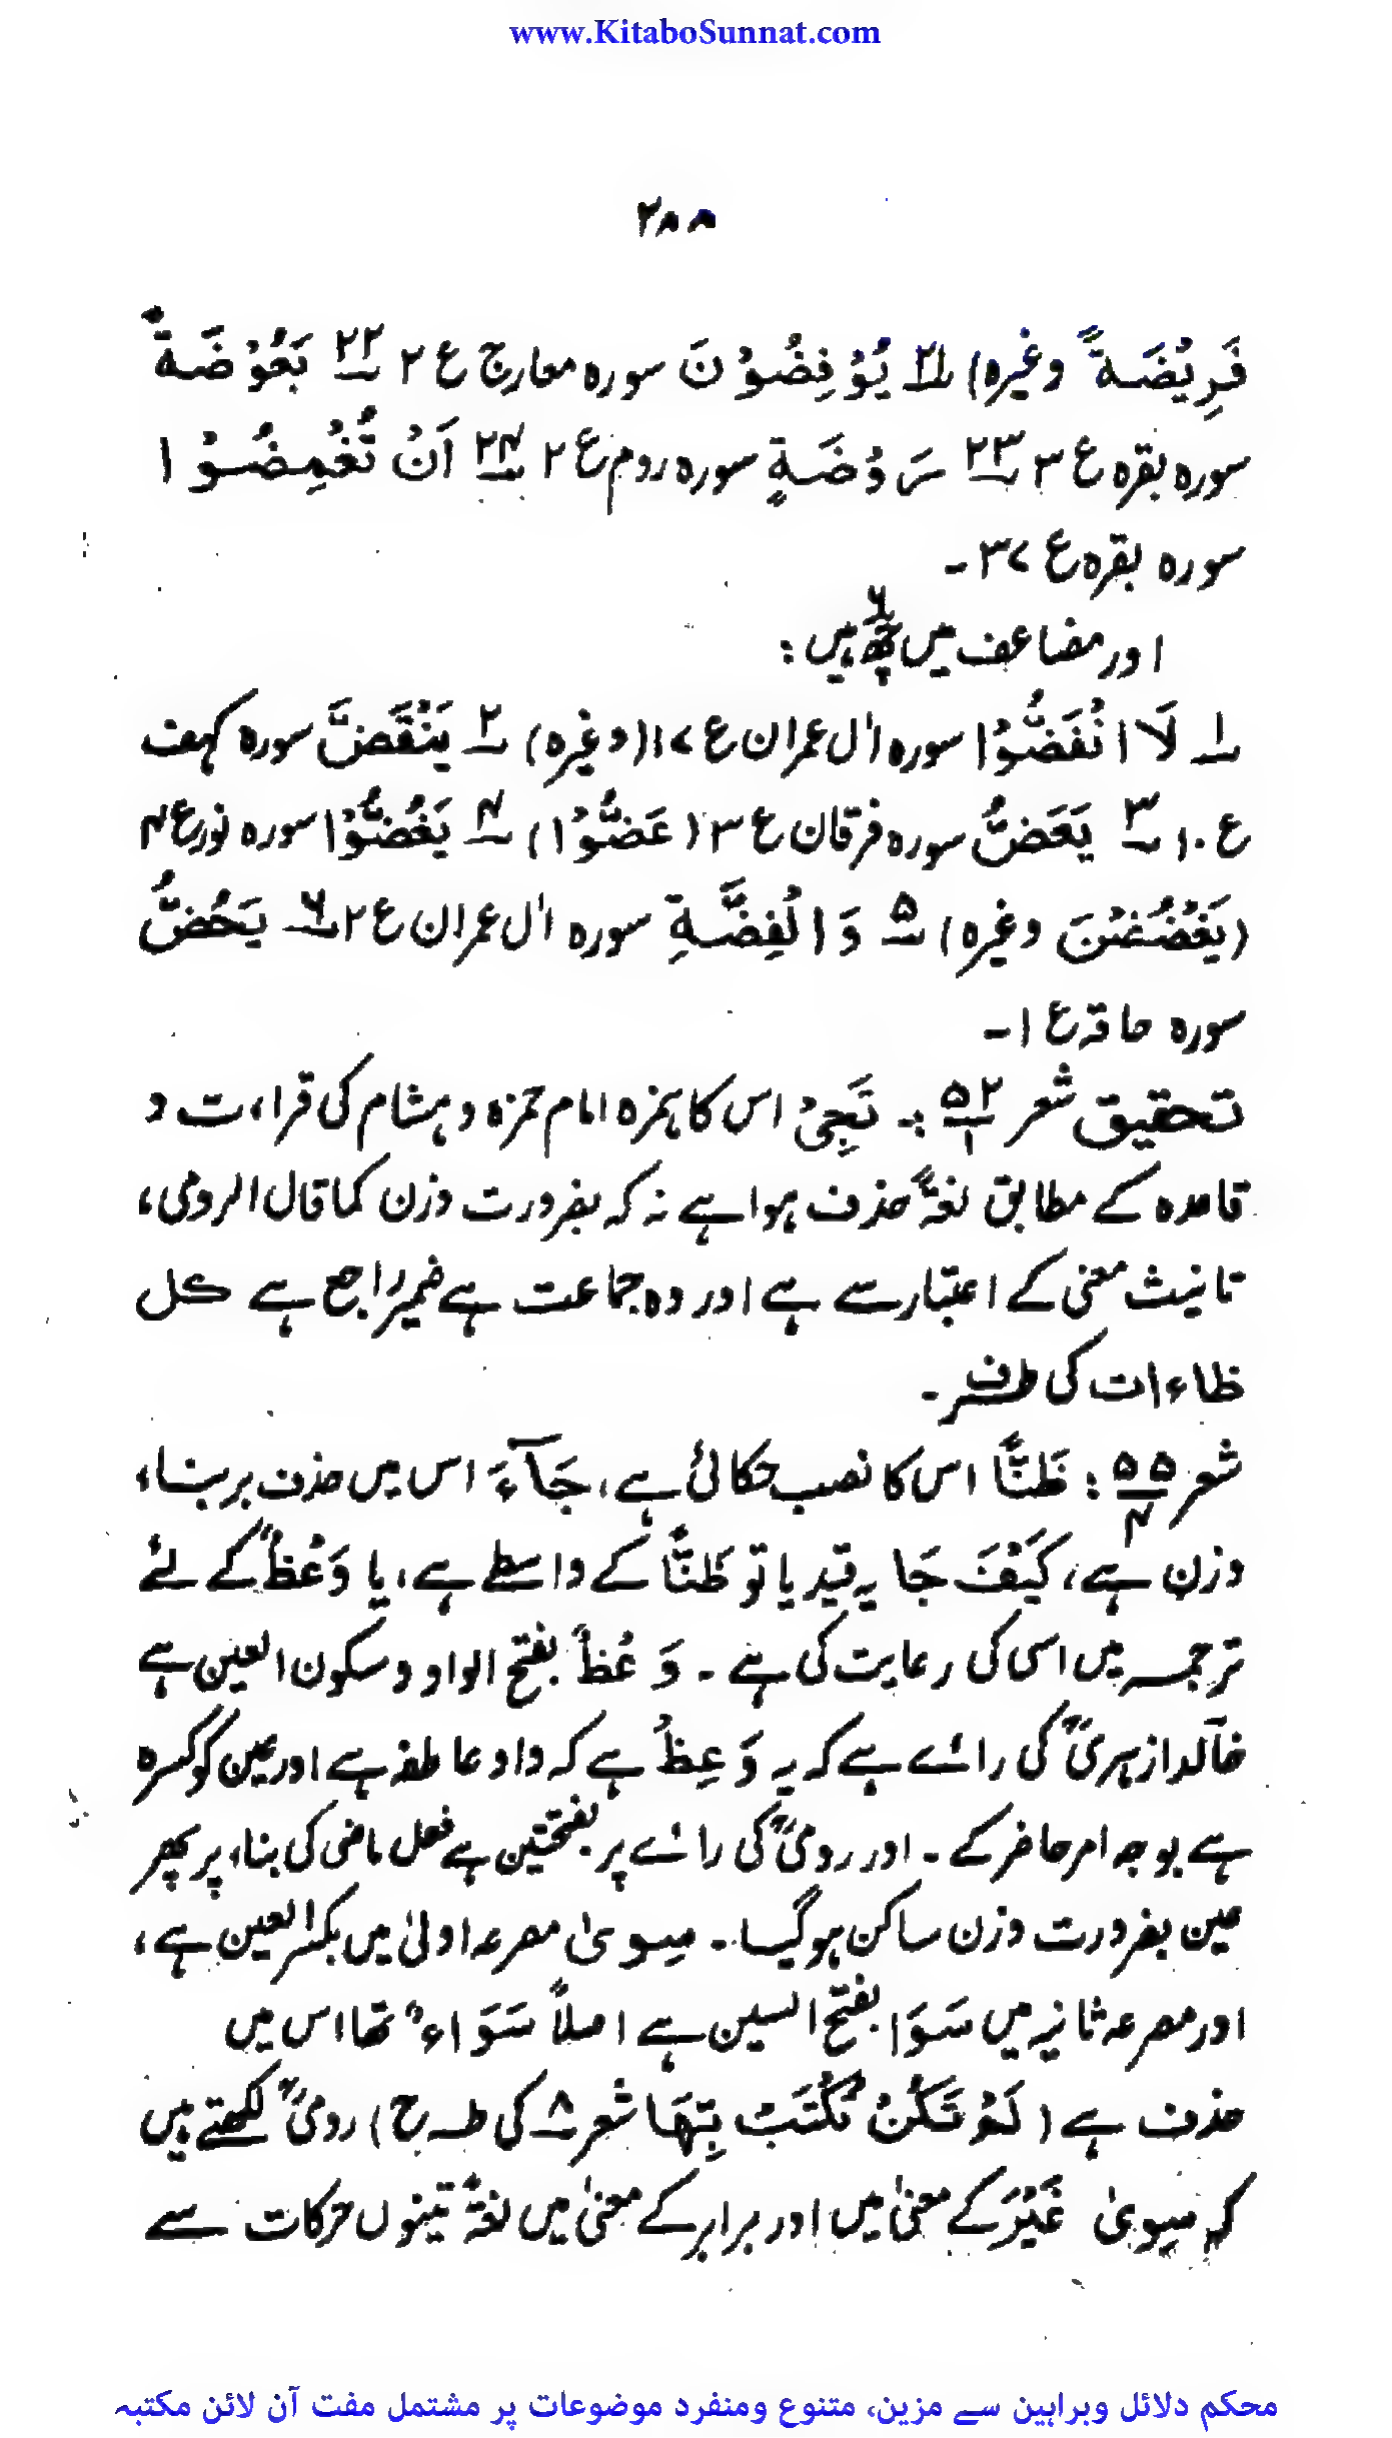 www.KitaboSunnat.com
۲۸۸
فَرِیْضَةً وغیرہ) ۲۱ یُوْفِضُوْنَ سورہ معارج ع ۲ ۲۲ بَعُوْضَةً
سورہ بقرہ ع ۳ ۲۳ رَوْضَةٍ سورہ روم ع ۲ ۲۴ اَنْ تُغْمِضُوْا
سورہ بقرہ ع ۳۷ ۔
اور مضاعف میں چھ۶ ہیں :
۱ لَا انْفَضُّوْا سورہ اٰل عمران ع ۱۷ (وغیرہ) ۲ یَنْقَضَّ سورہ کہف
ع ۱۰ ۳ یَعَضُّ سورہ فرقان ع ۳ (عَضُّوْا) ۴ یَغُضُّوْا سورہ نور ع ۴
(یَغْضُضْنَ وغیرہ) ۵ وَالْفِضَّةِ سورہ اٰل عمران ع ۲ ۶ یَحُضُّ
سورہ حاقہ ع ۱ ۔
تحقیق شعر ۵۲/۱ :۔ تَجِیْ اس کا ہمزہ امام حمزہ و ہشام کی قراءت و
قاعدہ کے مطابق لغۃً حذف ہوا ہے نہ کہ بضرورت وزن کما قال الرومی،
تانیث معنی کے اعتبار سے ہے اور وہ جماعت ہے ضمیر راجع ہے کل
ظاءات کی طرف ۔
شعر ۵۵/۴ : ظَنًّا اس کا نصب حکائی ہے، جَآءَ اس میں حذف بر بناء
وزن ہے، کَیْفَ جَا یہ قید یا تو ظَنًّا کے واسطے ہے، یا وَعْظٌ کے لئے
ترجمہ میں اسی کی رعایت کی ہے ۔ وَعْظٌ بفتح الواو و سکون العین ہے
خالد ازہریؒ کی رائے ہے کہ یہ وَعِظْ ہے کہ واو عاطفہ ہے اور عین کو کسرہ
ہے بوجہ امر حاضر کے ۔ اور رومیؒ کی رائے پر بفتحتین ہے فعل ماضی کی بناء پر پھر
عین بضرورت وزن ساکن ہو گیا ۔ سِویٰ مصرعہ اولیٰ میں بکسر العین ہے،
اور مصرعہ ثانیہ میں سَوَا بفتح السین ہے اصلاً سَوَاءٌ تھا اس میں
حذف ہے (لَمْ تَکُنْ تُکْتَبْ بِتِهَا شعر ۸ کی طرح) رومیؒ لکھتے ہیں
کہ سِویٰ غَیْرَ کے معنیٰ میں اور برابر کے معنیٰ میں لغۃً تینوں حرکات سے
محکم دلائل وبراہین سے مزین، متنوع ومنفرد موضوعات پر مشتمل مفت آن لائن مکتبہ